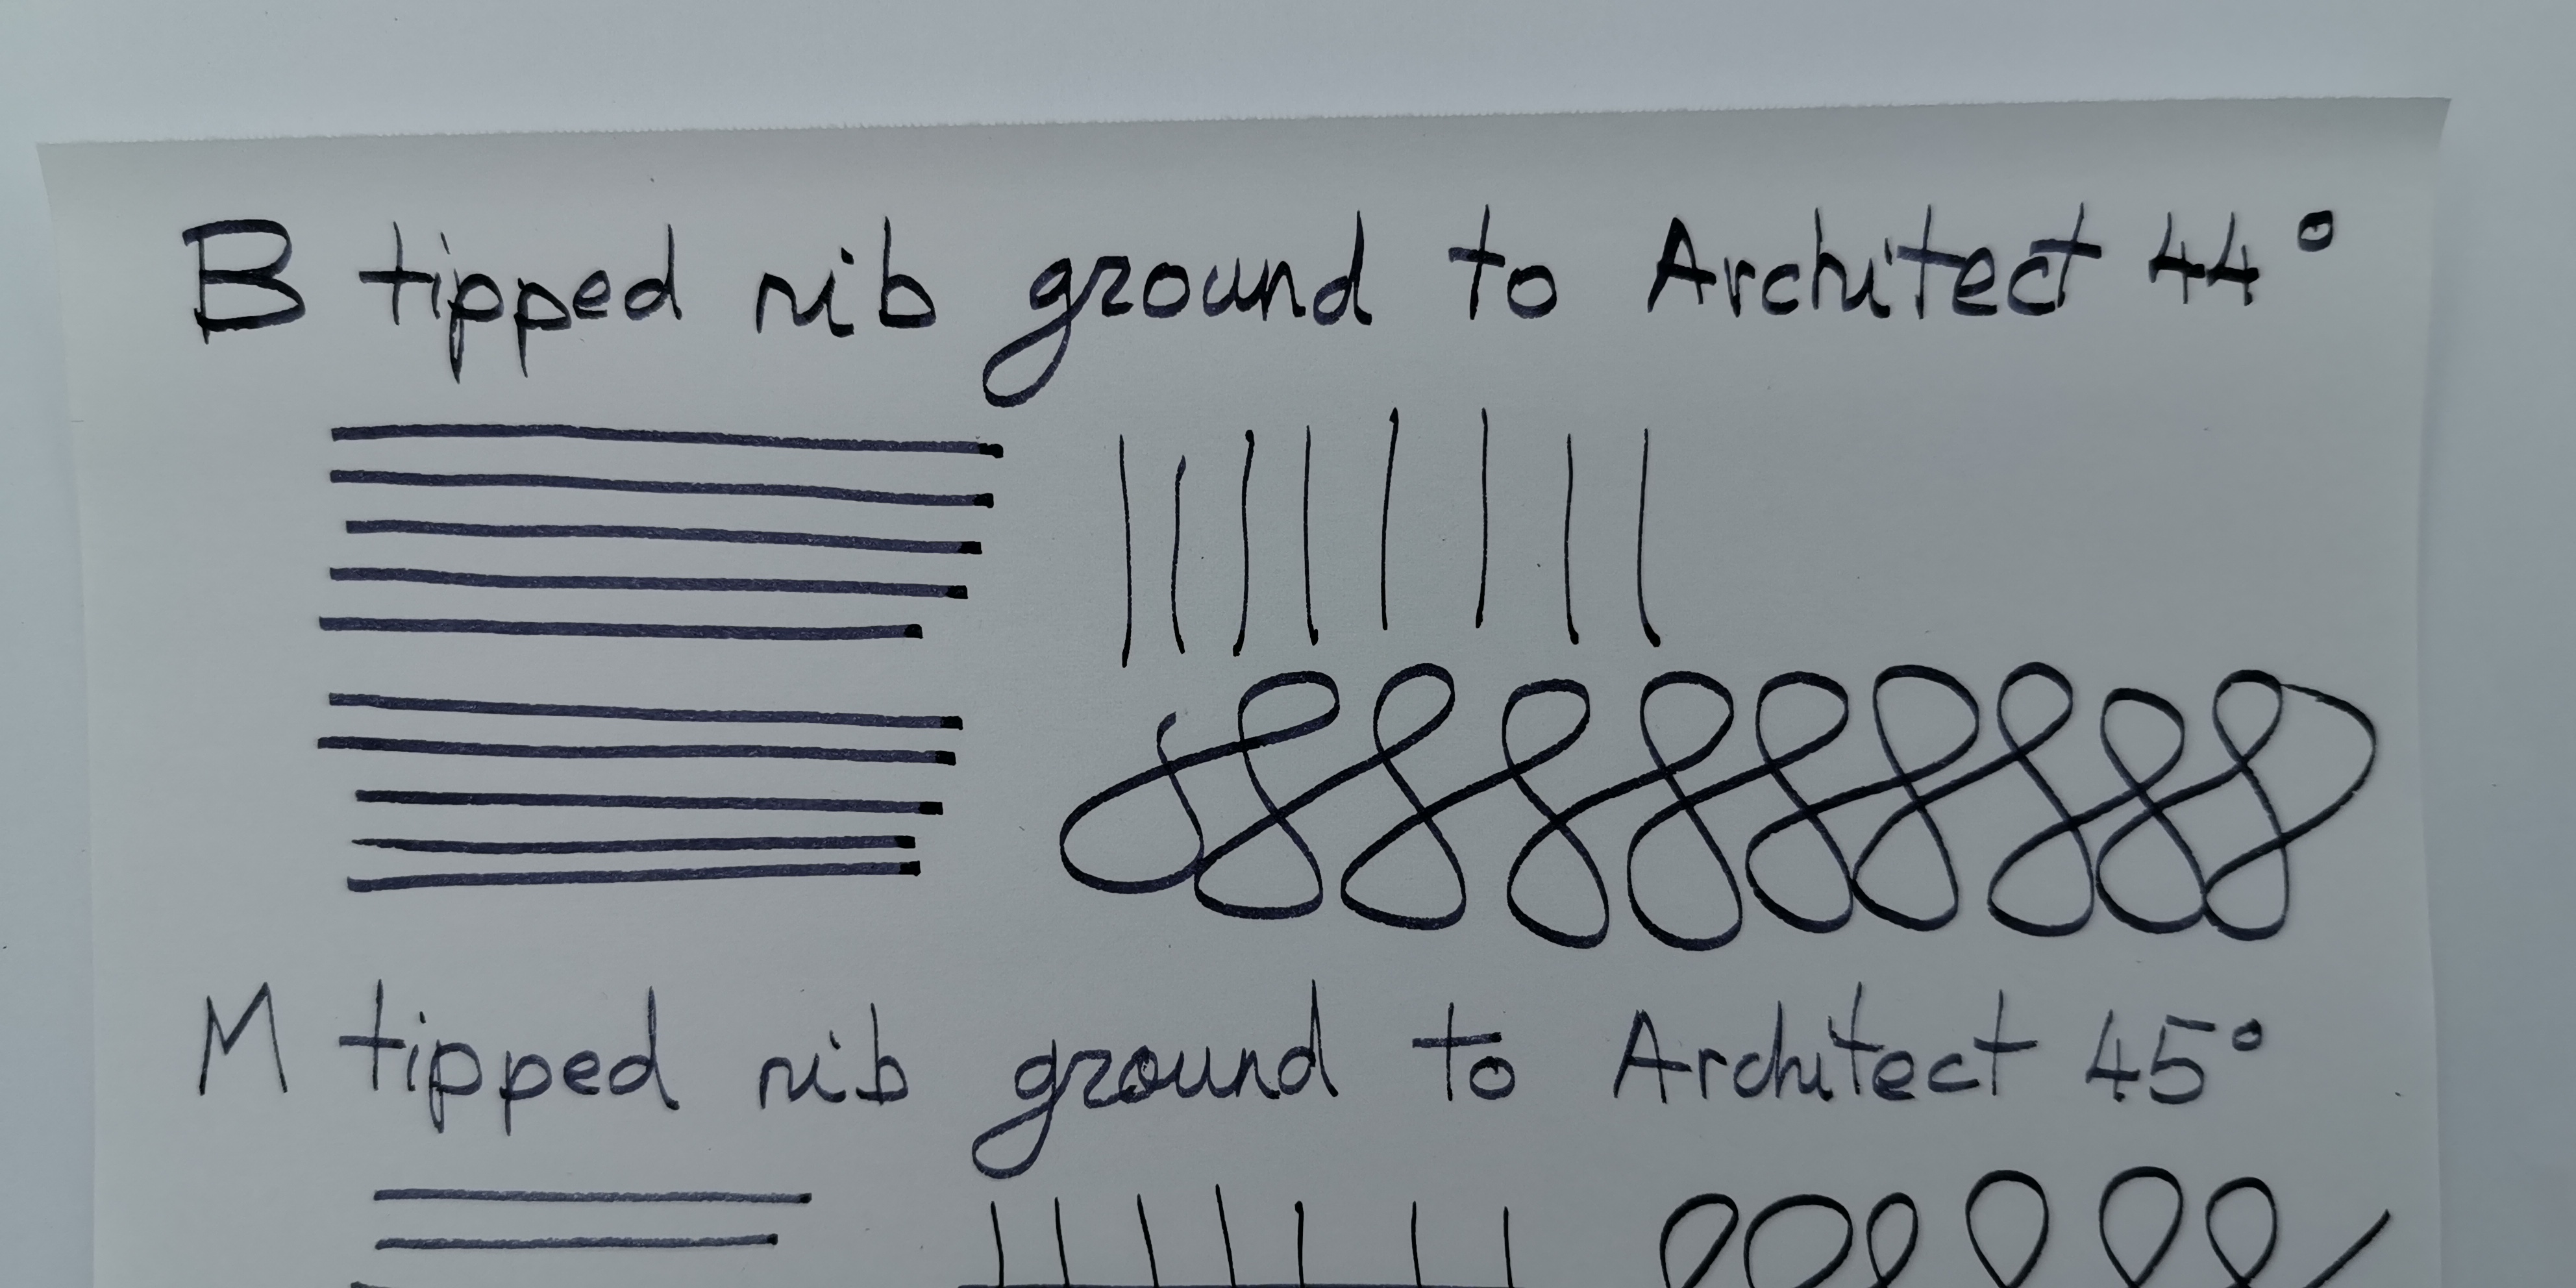 B tipped nib ground to Architect 44°
M tipped nib ground to Architect 45°